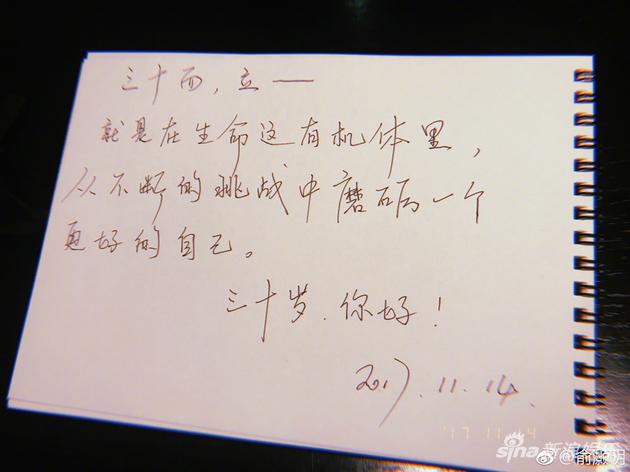 三十而，立——
就是在生命这有机体里，
从不断的挑战中磨砺一个
更好的自己。
三十岁，你好！
2017.11.14.
'17 11 14
sina 新浪娱乐
@俞灏明